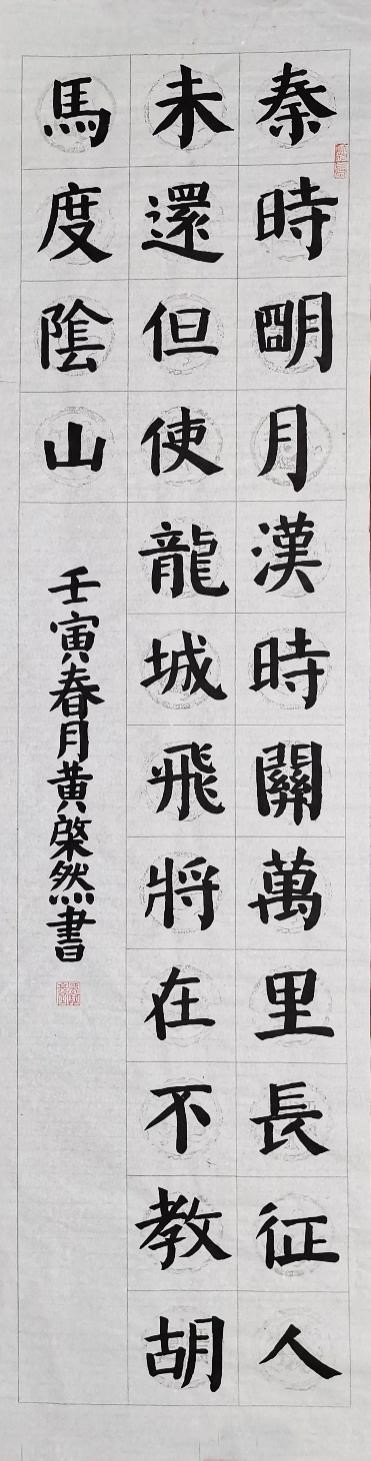 秦時明月漢時關萬里長征人
未還但使龍城飛將在不教胡
馬度陰山
壬寅春月黄棨然書